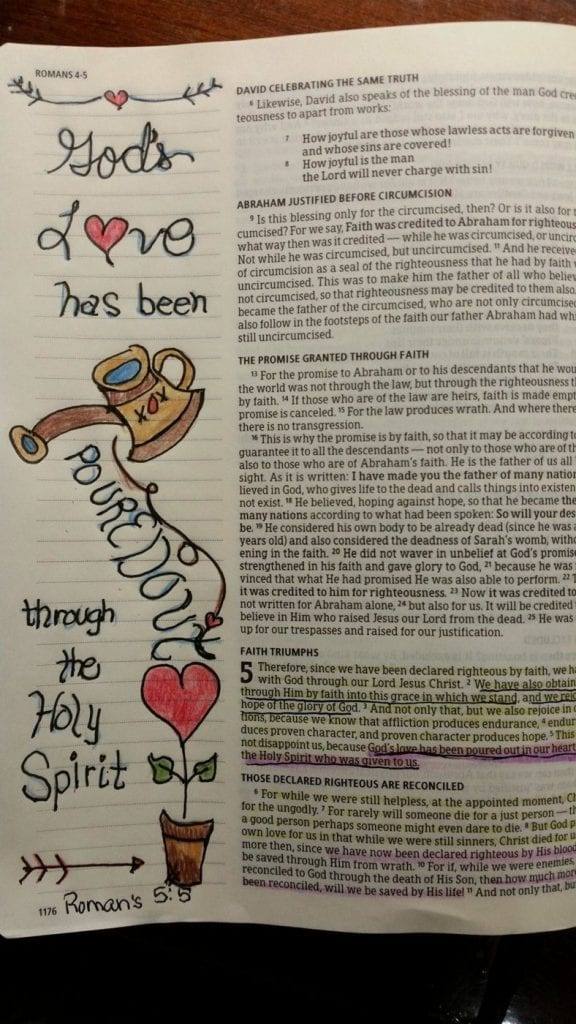 ROMANS 4-5
God's
Love
has been
POURED OUT
through
the
Holy
Spirit
1176 Roman's 5:5
DAVID CELEBRATING THE SAME TRUTH
6 Likewise, David also speaks of the blessing of the man God cre
teousness to apart from works:
7 How joyful are those whose lawless acts are forgiven
and whose sins are covered!
8 How joyful is the man
the Lord will never charge with sin!
ABRAHAM JUSTIFIED BEFORE CIRCUMCISION
9 Is this blessing only for the circumcised, then? Or is it also for
cumcised? For we say, Faith was credited to Abraham for righteous
what way then was it credited — while he was circumcised, or uncirc
Not while he was circumcised, but uncircumcised. 11 And he receive
of circumcision as a seal of the righteousness that he had by faith
uncircumcised. This was to make him the father of all who believ
not circumcised, so that righteousness may be credited to them also.
became the father of the circumcised, who are not only circumcise
also follow in the footsteps of the faith our father Abraham had whi
still uncircumcised.
THE PROMISE GRANTED THROUGH FAITH
13 For the promise to Abraham or to his descendants that he wou
the world was not through the law, but through the righteousness t
by faith. 14 If those who are of the law are heirs, faith is made empt
promise is canceled. 15 For the law produces wrath. And where there
there is no transgression.
16 This is why the promise is by faith, so that it may be according to
guarantee it to all the descendants — not only to those who are of th
also to those who are of Abraham's faith. He is the father of us all
sight. As it is written: I have made you the father of many nation
lieved in God, who gives life to the dead and calls things into existen
not exist. 18 He believed, hoping against hope, so that he became the
many nations according to what had been spoken: So will your des
be. 19 He considered his own body to be already dead (since he was a
years old) and also considered the deadness of Sarah's womb, witho
ening in the faith. 20 He did not waver in unbelief at God's promise
strengthened in his faith and gave glory to God, 21 because he was
vinced that what He had promised He was also able to perform. 22 T
it was credited to him for righteousness. 23 Now it was credited to
not written for Abraham alone, 24 but also for us. It will be credited
believe in Him who raised Jesus our Lord from the dead. 25 He was
up for our trespasses and raised for our justification.
FAITH TRIUMPHS
5 Therefore, since we have been declared righteous by faith, we ha
with God through our Lord Jesus Christ. 2 We have also obtain
through Him by faith into this grace in which we stand, and we rejo
hope of the glory of God. 3 And not only that, but we also rejoice in
tions, because we know that affliction produces endurance, 4 endur
duces proven character, and proven character produces hope. 5 This
not disappoint us, because God's love has been poured out in our heart
the Holy Spirit who was given to us.
THOSE DECLARED RIGHTEOUS ARE RECONCILED
6 For while we were still helpless, at the appointed moment, Ch
for the ungodly. 7 For rarely will someone die for a just person — th
a good person perhaps someone might even dare to die. 8 But God p
own love for us in that while we were still sinners, Christ died for us
more then, since we have now been declared righteous by His blood
be saved through Him from wrath. 10 For if, while we were enemies,
reconciled to God through the death of His Son, then how much more
been reconciled, will we be saved by His life! 11 And not only that, bu